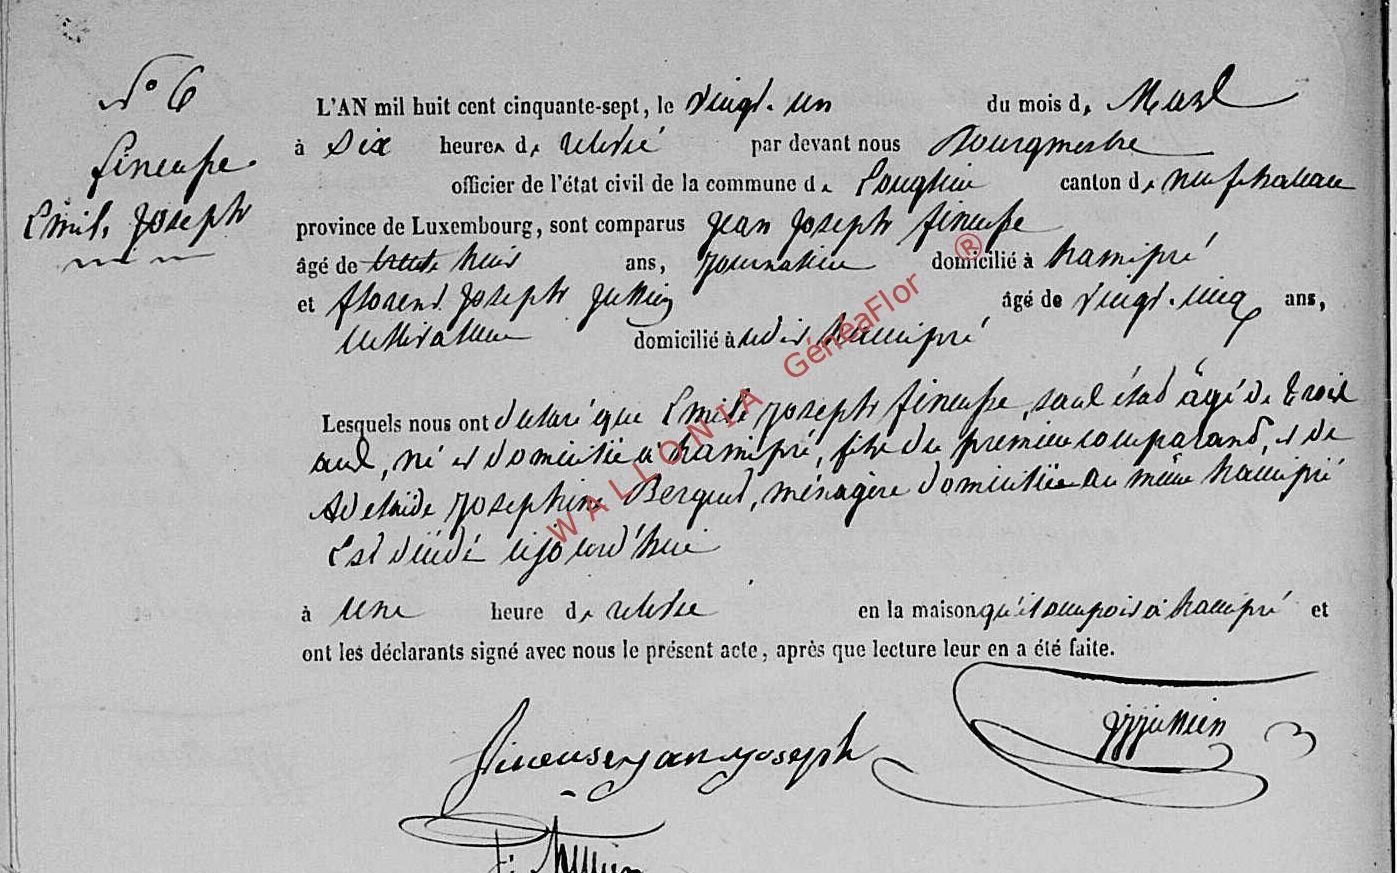 N° 6
Fineuse
Emile Joseph
L'AN mil huit cent cinquante-sept, le vingt-un du mois de Mars
à Six heures de relevée par devant nous Bourgmestre
officier de l'état civil de la commune de Longlier canton de neufchateau
province de Luxembourg, sont comparus Jean Joseph fineuse
âgé de trente huit ans, journalier domicilié à hamipré
et florent Joseph Jullien âgé de vingt-cinq ans,
cultivateur domicilié à hamipré
Lesquels nous ont declaré que Emile Joseph fineuse, sans état âgé de trois
ans, né et domicilié à hamipré, fils du premier comparant, et de
Adelaïde Josephine Berquet, ménagère domiciliée au même hamipré
Est décédé cejourd'hui
à une heure de relevée en la maison qu'il occupois à hamipré et
ont les déclarants signé avec nous le présent acte, après que lecture leur en a été faite.
fineuse jean joseph
jullien
WALLONIA GénéaFlor ®